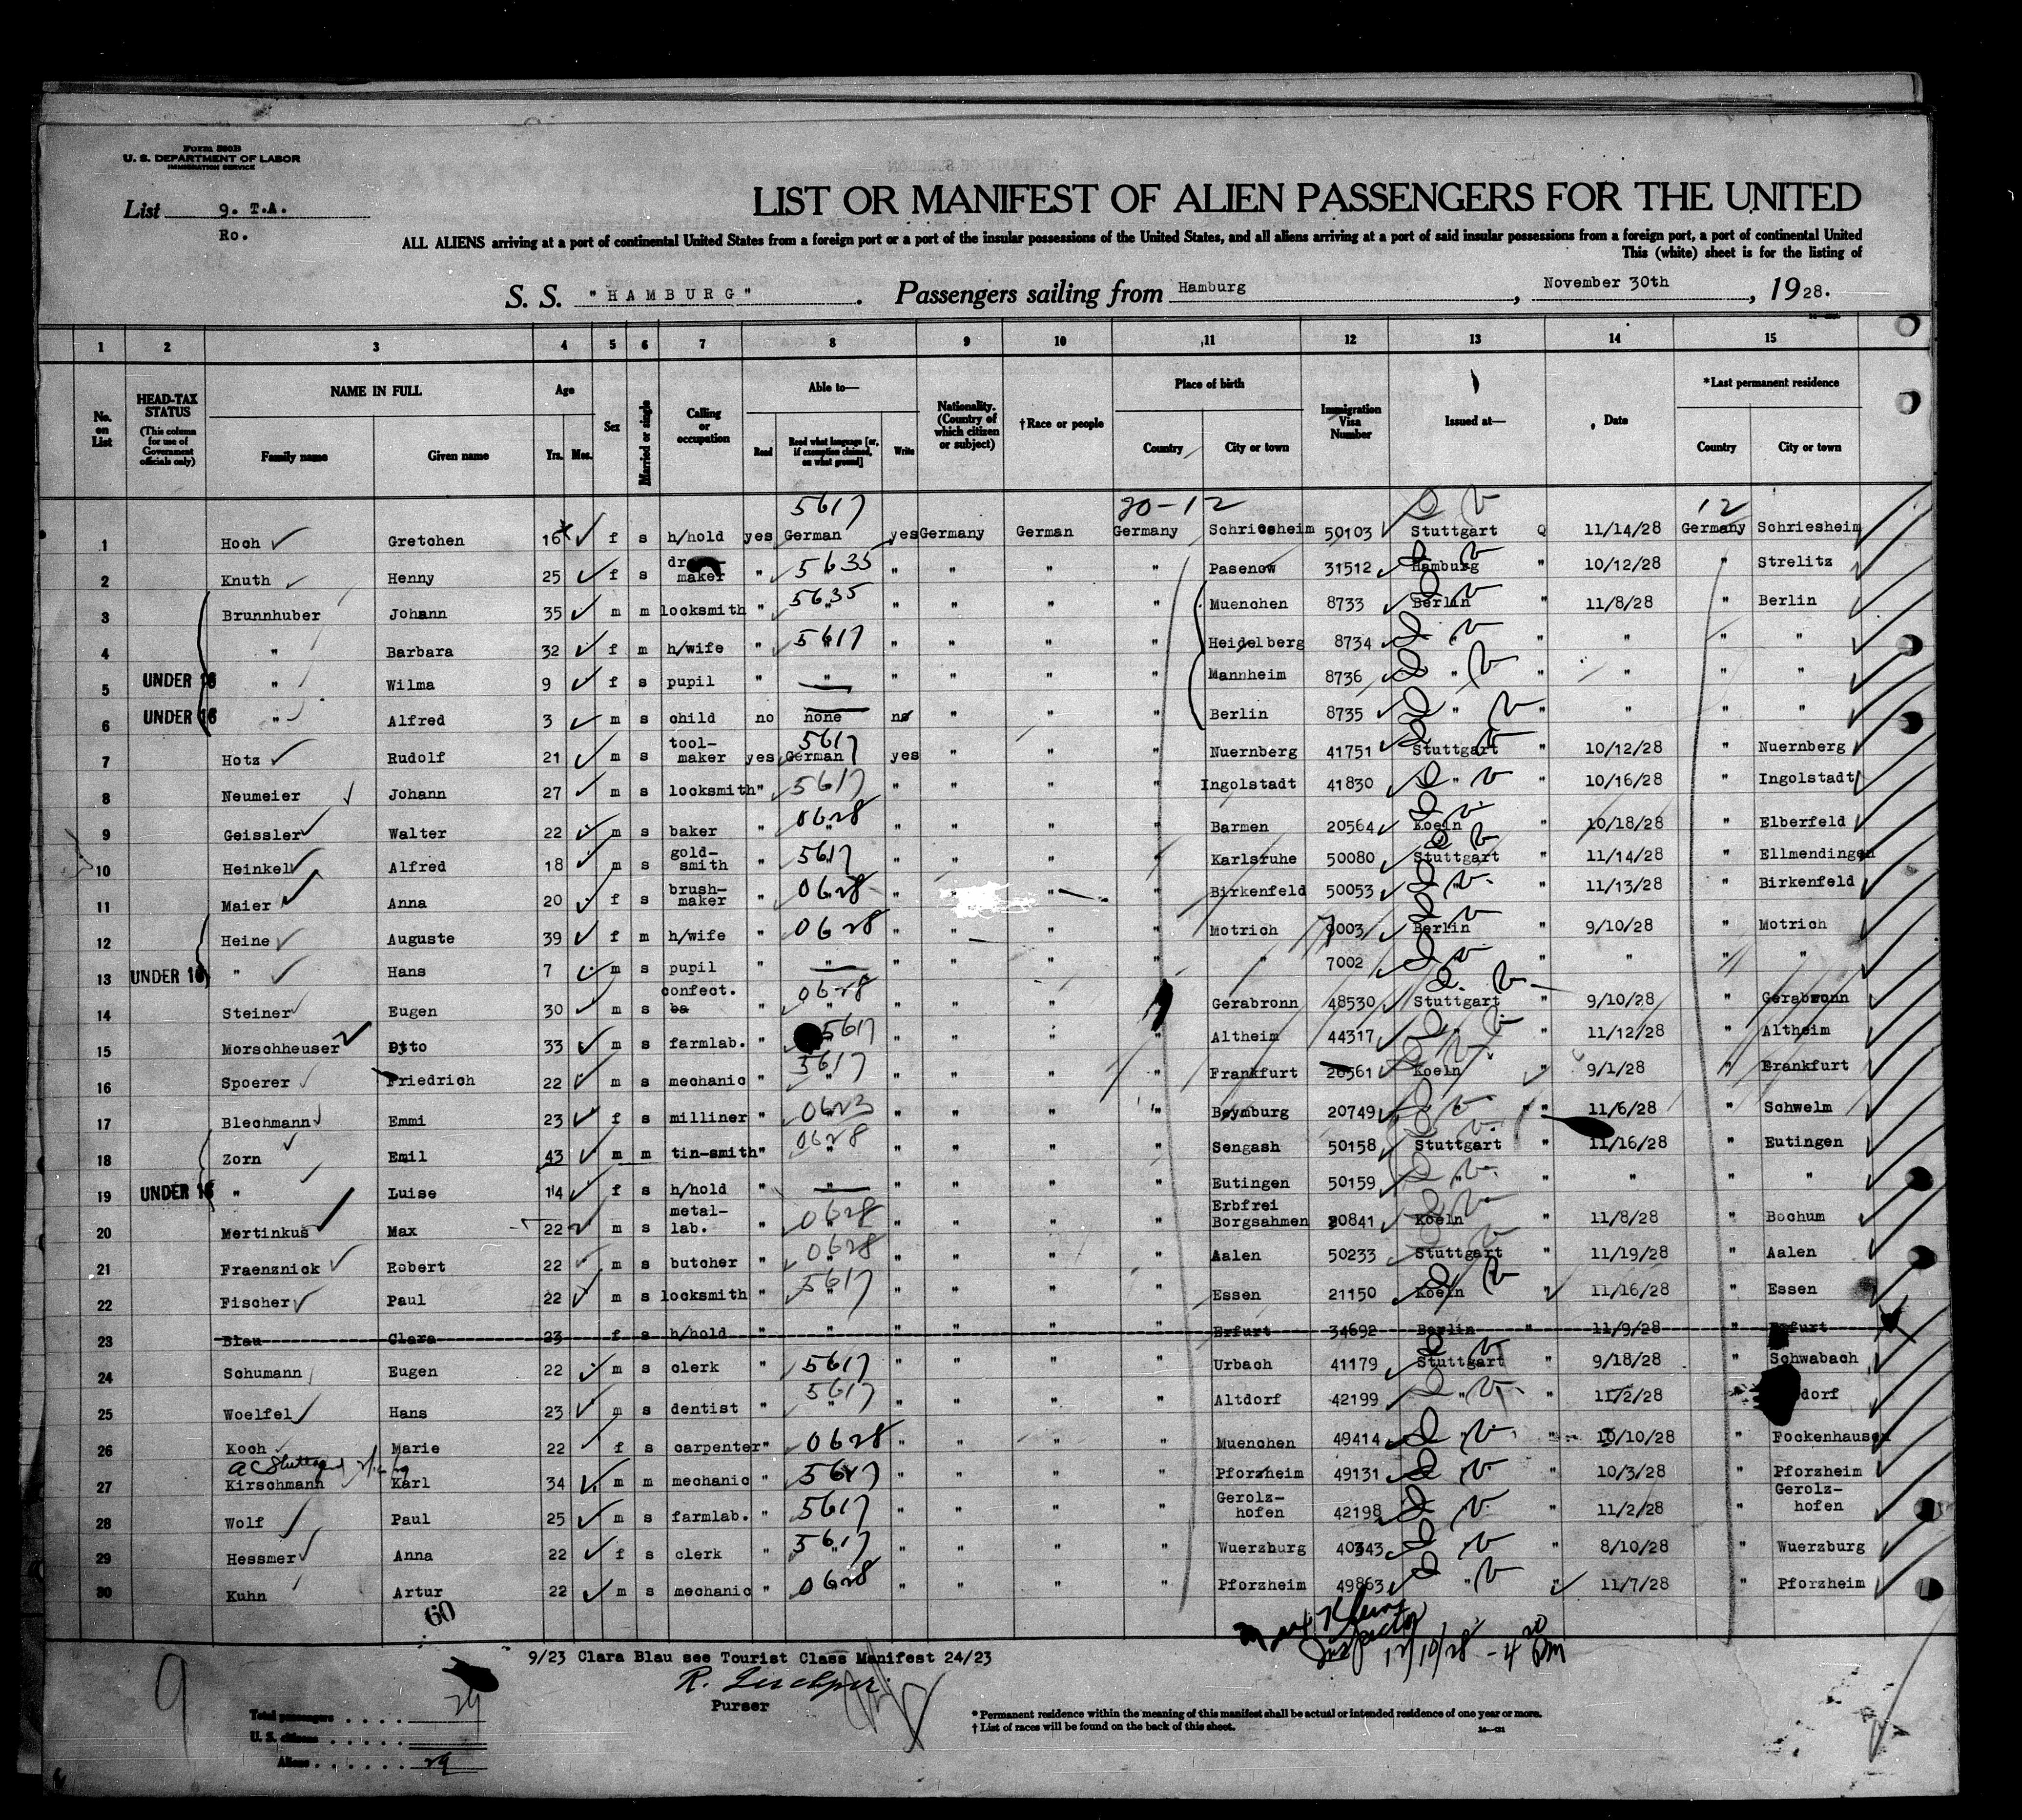 Form 500B
U. S. DEPARTMENT OF LABOR
IMMIGRATION SERVICE
List 9. T.A.
Ro.
LIST OR MANIFEST OF ALIEN PASSENGERS FOR THE UNITED
ALL ALIENS arriving at a port of continental United States from a foreign port or a port of the insular possessions of the United States, and all aliens arriving at a port of said insular possessions from a foreign port, a port of continental United
This (white) sheet is for the listing of
S. S. "HAMBURG". Passengers sailing from Hamburg, November 30th, 1928.
1 2 3 4 5 6 7 8 9 10 11 12 13 14 15
No. on List
HEAD-TAX STATUS (This column for use of Government officials only)
NAME IN FULL Family name Given name
Age Yrs. Mos.
Sex
Married or single
Calling or occupation
Able to— Read Read what language [or, if exemption claimed, on what ground] Write
Nationality. (Country of which citizen or subject)
†Race or people
Place of birth Country City or town
Immigration Visa Number
Issued at—
Date
*Last permanent residence Country City or town
5617 20-12 12
1 Hoch Gretchen 16 f s h/hold yes German yes Germany German Germany Schriesheim 50103 Stuttgart Q 11/14/28 Germany Schriesheim
2 Knuth Henny 25 f s maker " 5635 " " " " " Pasenow 31512 Hamburg " 10/12/28 " Strelitz
3 Brunnhuber Johann 35 m m locksmith " 5635 " " " " " Muenchen 8733 Berlin " 11/8/28 " Berlin
4 " Barbara 32 f m h/wife " 5617 " " " " " Heidelberg 8734 " " " " "
5 UNDER 16 " Wilma 9 f s pupil " " " " " " Mannheim 8736 " " " " "
6 UNDER 16 " Alfred 3 m s child no none no " " " Berlin 8735 " " " " "
7 Hotz Rudolf 21 m s tool-maker yes 5617 German yes " " " Nuernberg 41751 Stuttgart " 10/12/28 " Nuernberg
8 Neumeier Johann 27 m s locksmith " 5617 " " " " Ingolstadt 41830 " " 10/16/28 " Ingolstadt
9 Geissler Walter 22 m s baker " 0628 " " " " " Barmen 20564 Koeln " 10/18/28 " Elberfeld
10 Heinkel Alfred 18 m s gold-smith " 5617 " " " " " Karlsruhe 50080 Stuttgart " 11/14/28 " Ellmendingen
11 Maier Anna 20 f s brush-maker " 0628 " " " " Birkenfeld 50053 " " 11/13/28 " Birkenfeld
12 Heine Auguste 39 f m h/wife " 0628 " " " " " Motrich 7003 Berlin " 9/10/28 " Motrich
13 UNDER 16 " Hans 7 m s pupil " " " " " " " 7002 " " " " "
14 Steiner Eugen 30 m s confect. ba " 0628 " " " " " Gerabronn 48530 Stuttgart " 9/10/28 " Gerabronn
15 Morschheuser Otto 33 m s farmlab. " 5617 " " " " Altheim 44317 " " 11/12/28 " Altheim
16 Spoerer Friedrich 22 m s mechanic " 5617 " " " " " Frankfurt 20561 Koeln " 9/1/28 " Frankfurt
17 Blechmann Emmi 23 f s milliner " 0623 " " " " Beymburg 20749 " " 11/6/28 " Schwelm
18 Zorn Emil 43 m m tin-smith " 0628 " " " " " Sengash 50158 Stuttgart " 11/16/28 " Eutingen
19 UNDER 16 " Luise 14 f s h/hold " " " " " " Eutingen 50159 " " " " "
20 Mertinkus Max 22 m s metal-lab. " 0628 " " " " " Erbfrei Borgsahmen 20841 Koeln " 11/8/28 " Bochum
21 Fraenznick Robert 22 m s butcher " 0628 " " " " " Aalen 50233 Stuttgart " 11/19/28 " Aalen
22 Fischer Paul 22 m s locksmith " 5617 " " " " " Essen 21150 Koeln " 11/16/28 " Essen
23 Blau Clara 23 f s h/hold " " " " " " Erfurt 34692 Berlin " 11/9/28 " Erfurt
24 Schumann Eugen 22 m s clerk " 5617 " " " " Urbach 41179 Stuttgart " 9/18/28 " Schwabach
25 Woelfel Hans 23 m s dentist " 5617 " " " " " Altdorf 42199 " " 11/2/28 " dorf
26 Koch Marie 22 f s carpenter " 0628 " " " " Muenchen 49414 " " 10/10/28 " Fockenhausen
27 Kirschmann Karl 34 m m mechanic " 5617 " " " " Pforzheim 49131 " " 10/3/28 " Pforzheim
28 Wolf Paul 25 m s farmlab. " 5617 " " " " Gerolz-hofen 42198 " " 11/2/28 " Gerolz-hofen
29 Hessmer Anna 22 f s clerk " 5617 " " " " " Wuerzburg 40343 " " 8/10/28 " Wuerzburg
30 Kuhn Artur 22 m s mechanic " 0628 " " " " Pforzheim 49863 " " 11/7/28 " Pforzheim
60
Inspector
12/10/28 - 4 20 PM
9/23 Clara Blau see Tourist Class Manifest 24/23
9
Purser
Total passengers . . . . 29
U. S. citizens . . . . .
Aliens . . . . . . 29
* Permanent residence within the meaning of this manifest shall be actual or intended residence of one year or more.
† List of races will be found on the back of this sheet.